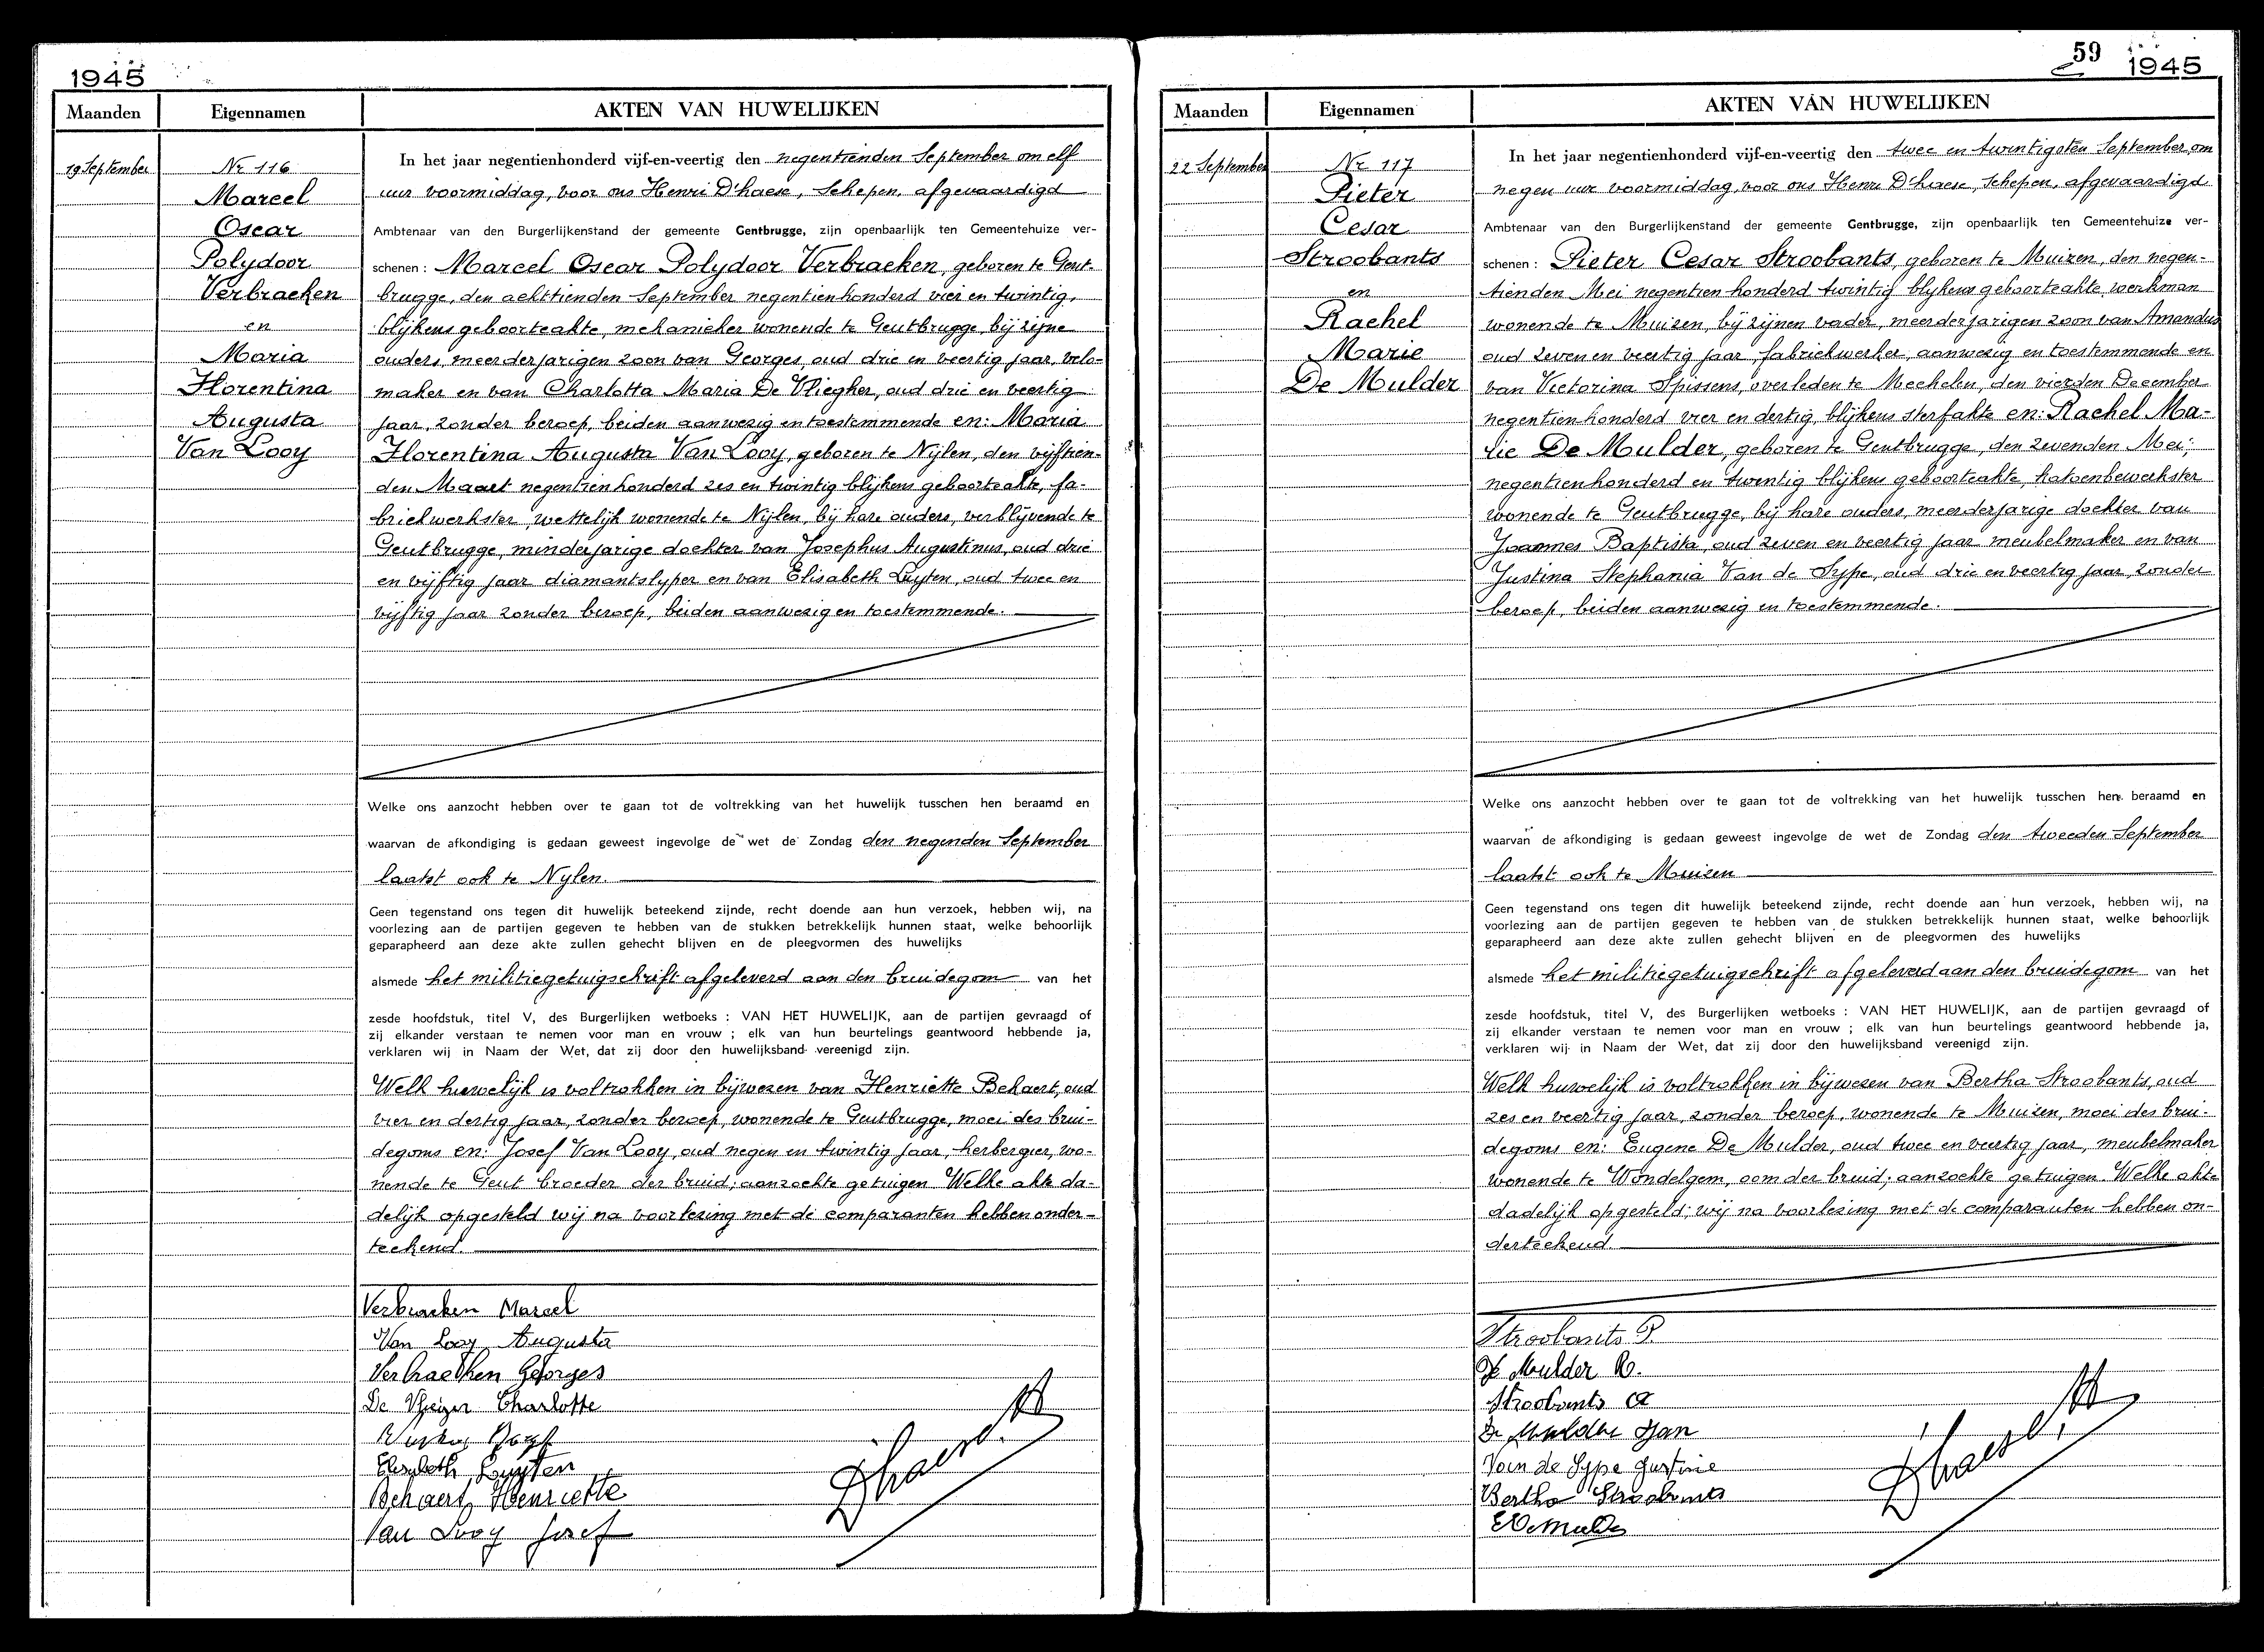 1945
Maanden
Eigennamen
AKTEN VAN HUWELIJKEN
19 September
Nr 116
Marcel
Oscar
Polydoor
Verbraeken
en
Maria
Florentina
Augusta
Van Looy
In het jaar negentienhonderd vijf-en-veertig den negentienden September om elf
uur voormiddag, voor ons Henri D'haese, Schepen, afgevaardigd
Ambtenaar van den Burgerlijkenstand der gemeente Gentbrugge, zijn openbaarlijk ten Gemeentehuize ver-
schenen : Marcel Oscar Polydoor Verbraeken, geboren te Gent-
brugge, den achttienden September negentienhonderd vier en twintig,
blijkens geboorteakte, mekanieker wonende te Gentbrugge, bij zijne
ouders, meerderjarigen zoon van Georges, oud drie en veertig jaar, velo-
maker en van Charlotta Maria De Vliegher, oud drie en veertig
jaar, zonder beroep, beiden aanwezig en toestemmende en: Maria
Florentina Augusta Van Looy, geboren te Nijlen, den vijftien-
den Maart negentienhonderd zes en twintig blijkens geboorteakte, fa-
briekwerkster, wettelijk wonende te Nijlen, bij hare ouders, verblijvende te
Gentbrugge, minderjarige dochter van Josephus Augustinus, oud drie
en vijftig jaar diamantslyper en van Elisabeth Luyten, oud twee en
vijftig jaar zonder beroep, beiden aanwezig en toestemmende.
Welke ons aanzocht hebben over te gaan tot de voltrekking van het huwelijk tusschen hen beraamd en
waarvan de afkondiging is gedaan geweest ingevolge de wet de Zondag den negenden September
laatst ook te Nylen.
Geen tegenstand ons tegen dit huwelijk beteekend zijnde, recht doende aan hun verzoek, hebben wij, na
voorlezing aan de partijen gegeven te hebben van de stukken betrekkelijk hunnen staat, welke behoorlijk
geparapheerd aan deze akte zullen gehecht blijven en de pleegvormen des huwelijks
alsmede het militiegetuigschrift afgeleverd aan den bruidegom van het
zesde hoofdstuk, titel V, des Burgerlijken wetboeks : VAN HET HUWELIJK, aan de partijen gevraagd of
zij elkander verstaan te nemen voor man en vrouw ; elk van hun beurtelings geantwoord hebbende ja,
verklaren wij in Naam der Wet, dat zij door den huwelijksband vereenigd zijn.
Welk huwelijk is voltrokken in bijwezen van Henriette Bekaert, oud
vier en dertig jaar, zonder beroep, wonende te Gentbrugge, moei des brui-
degoms en: Josef Van Looy, oud negen en twintig jaar, herbergier, wo-
nende te Gent broeder der bruid; aanzochte getuigen. Welke akte da-
delijk opgesteld wij na voorlezing met de comparanten hebben onder-
teekend.
Verbraeken Marcel
Van Looy Augusta
Verbraeken Georges
De Vlieger Charlotte
Elisabeth Luyten
Bekaert Henriette
Van Looy Josef
Dhaese H
59
1945
Maanden
Eigennamen
AKTEN VAN HUWELIJKEN
22 September
Nr 117
Pieter
Cesar
Stroobants
en
Rachel
Marie
De Mulder
In het jaar negentienhonderd vijf-en-veertig den twee en twintigsten September, om
negen uur voormiddag, voor ons Henri D'haese, Schepen, afgevaardigd
Ambtenaar van den Burgerlijkenstand der gemeente Gentbrugge, zijn openbaarlijk ten Gemeentehuize ver-
schenen : Pieter Cesar Stroobants, geboren te Muizen, den negen-
tienden Mei negentien honderd twintig blykens geboorteakte, werkman
wonende te Muizen, bij zijnen vader, meerderjarigen zoon van Amandus
oud zeven en veertig jaar, fabriekwerker, aanwezig en toestemmende en
van Victorina Spissens, overleden te Mechelen, den vierden December
negentienhonderd vier en dertig, blijkens sterfakte en: Rachel Ma-
rie De Mulder, geboren te Gentbrugge, den zevenden Mei,
negentienhonderd en twintig blijkens geboorteakte, katoenbewerkster
wonende te Gentbrugge, bij hare ouders, meerderjarige dochter van
Joannes Baptista, oud zeven en veertig jaar meubelmaker en van
Justina Stephania Van de Sype, oud drie en veertig jaar, zonder
beroep, beiden aanwezig en toestemmende.
Welke ons aanzocht hebben over te gaan tot de voltrekking van het huwelijk tusschen hen beraamd en
waarvan de afkondiging is gedaan geweest ingevolge de wet de Zondag den tweeden September
laatst ook te Muizen
Geen tegenstand ons tegen dit huwelijk beteekend zijnde, recht doende aan hun verzoek, hebben wij, na
voorlezing aan de partijen gegeven te hebben van de stukken betrekkelijk hunnen staat, welke behoorlijk
geparapheerd aan deze akte zullen gehecht blijven en de pleegvormen des huwelijks
alsmede het militiegetuigschrift afgeleverd aan den bruidegom van het
zesde hoofdstuk, titel V, des Burgerlijken wetboeks : VAN HET HUWELIJK, aan de partijen gevraagd of
zij elkander verstaan te nemen voor man en vrouw ; elk van hun beurtelings geantwoord hebbende ja,
verklaren wij in Naam der Wet, dat zij door den huwelijksband vereenigd zijn.
Welk huwelijk is voltrokken in bijwezen van Bertha Stroobants, oud
zes en veertig jaar, zonder beroep, wonende te Muizen, moei des brui-
degoms en: Eugene De Mulder, oud twee en veertig jaar, meubelmaker
wonende te Wondelgem, oom der bruid; aanzochte getuigen. Welke akte
dadelijk opgesteld; wij na voorlezing met de comparanten hebben on-
derteekend.
Stroobants P.
De Mulder R.
Stroobants A
De Mulder Jan
Van de Sype Justine
Bertha Stroobants
E De Mulder
Dhaese H